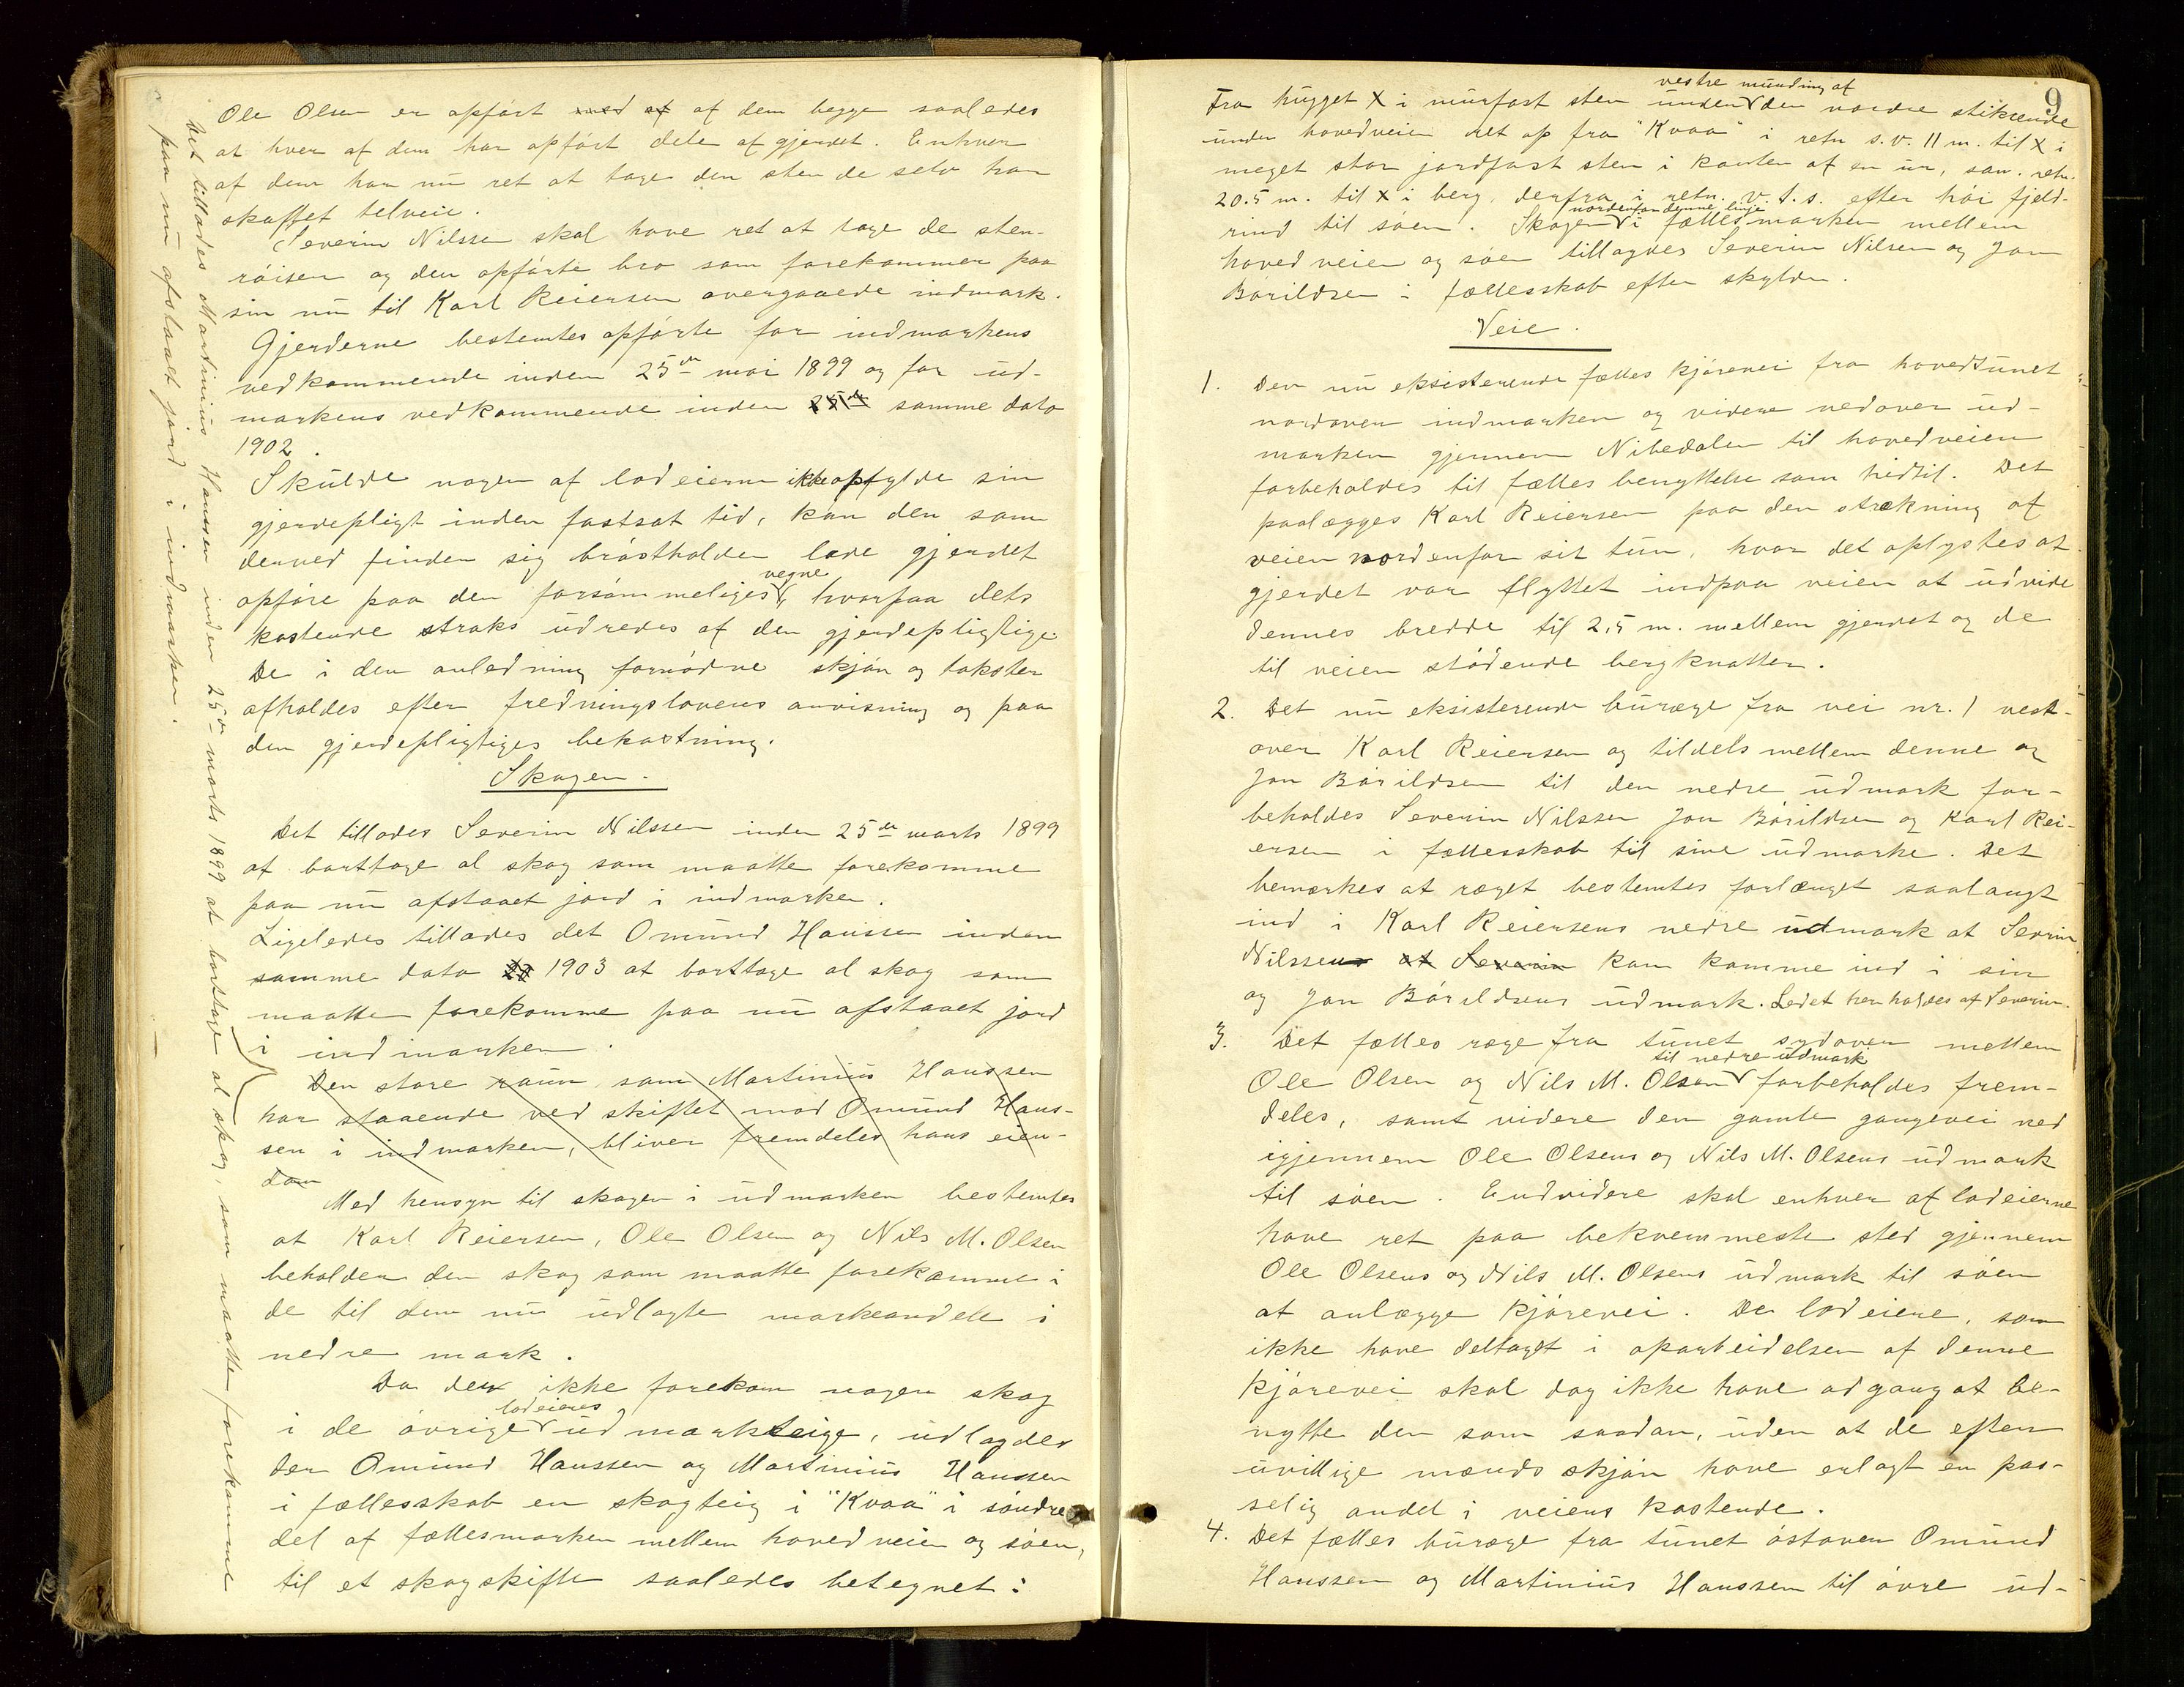 Ole Olsen er opført med af af dem begge saaledes
at hver af dem har opført dele af gjerdet. Enhver
af dem har nu ret at tage den sten de selv har
skaffet tilveie.
Severin Nilssen skal have ret at tage de sten-
røiser og den opførte bro som forekommer paa
sin nu til Karl Reiersen overgaaede indmark.
Gjerderne bestemtes opførte for indmarkens
vedkommende inden 25de mai 1899 og for ud-
markens vedkommende inden 25de samme dato
1902.
Skulde nogen af lodeierne ikke opfylde sin
gjerdepligt inden fastsat tid, kan den som
derved finder sig brøstholden lade gjerdet
opføre paa den forsømmeliges vegne, hvorpaa dets
kostende straks udredes af den gjerdepligtige.
De i den anledning fornødne skjøn og takster
afholdes efter fredningslovens anvisning og paa
den gjerdepligtiges bekostning.
Skogen.
Det tillades Severin Nilssen inden 25de marts 1899
at borttage al skog som maatte forekomme
paa nu afstaaet jord i indmarken.
Ligeledes tillades det Omund Hanssen inden
samme dato 1903 at borttage al skog som
maatte forekomme paa nu afstaaet jord
i indmarken.
Den store raun som Martinius Hanssen
har staaende ved skiftet mod Omund Hans-
sen i indmarken, bliver fremdeles hans eien-
dom
Med hensyn til skogen i udmarken bestemtes
at Karl Reiersen, Ole Olsen og Nils M. Olsen
beholder den skog som maatte forekomme i
de til dem nu udlagte markeandele i
nedre mark.
Da der ikke forekom nogen skog
i de øvrige lodeieres udmarkteige, udlagdes
der Omund Hanssen og Martinius Hanssen
i fællesskab en skogteig i "Kvaa" i søndre
del af fællesmarken mellem hovedveien og søen,
til et skogskifte saaledes betegnet:
Det tillades Martinius Hanssen inden 25de marts 1899 at borttage al skog, som maatte forekomme
paa nu afstaaet jord i indmarken.
9
Fra hugget X i murfast sten under vestre munding af den nordre stikrende
under hovedveien ret op fra "Kvaa" i retn s.v. 11 m. til X i
meget stor jordfast sten i kanten af en ur, sam. retn.
20.5 m. til X i berg, derfra i retn. v.t.s. efter høi fjeld-
rind til søen. Skogen nordenfor denne linje i fællesmarken mellem
hovedveien og søen tillagdes Severin Nilsen og Jon
Børildsen i fællesskab efter skylden.
Veie.
1. Den nu eksisterende fælles kjørevei fra hovedtunet
nordover indmarken og videre nedover ud-
marken gjennem Nibedalen til hovedveien
forbeholdes til fælles benyttelse som hidtil. Det
paalægges Karl Reiersen paa den strækning af
veien nordenfor sit tun, hvor det oplystes at
gjerdet var flyttet indpaa veien at udvide
dennes bredde til 2,5 m. mellem gjerdet og de
til veien stødende bergknatter.
2. Det nu eksisterende buræge fra vei nr. 1 vest-
over Karl Reiersen og tildels mellem denne og
Jon Børildsen til den nedre udmark for-
beholdes Severin Nilssen Jon Børildsen og Karl Rei-
ersen i fællesskab til sine udmarke. Det
bemærkes at ræget bestemtes forlænget saalangt
ind i Karl Reiersens nedre udmark at Severin
Nilssens at Severin kan komme ind i sin
og Jon Børildsens udmark. Ledet her holdes af Severin.
3. Det fælles ræge fra tunet sydover mellem
Ole Olsen og Nils M. Olsen til nedre udmark forbeholdes frem-
deles, samt videre den gamle gangevei ned
igjennem Ole Olsens og Nils M. Olsens udmark
til søen. Endvidere skal enhver af lodeierne
have ret paa bekvemmeste sted gjennem
Ole Olsens og Nils M. Olsens udmark til søen
at anlægge kjørevei. De lodeiere, som
ikke have deltaget i oparbeidelsen af denne
kjørevei skal dog ikke have adgang at be-
nytte den som saadan, uden at de efter
uvillige mænds skjøn have erlagt en pas-
selig andel i veiens kostende.
4. Det fælles buræge fra tunet østover Omund
Hanssen og Martinius Hanssen til øvre ud-